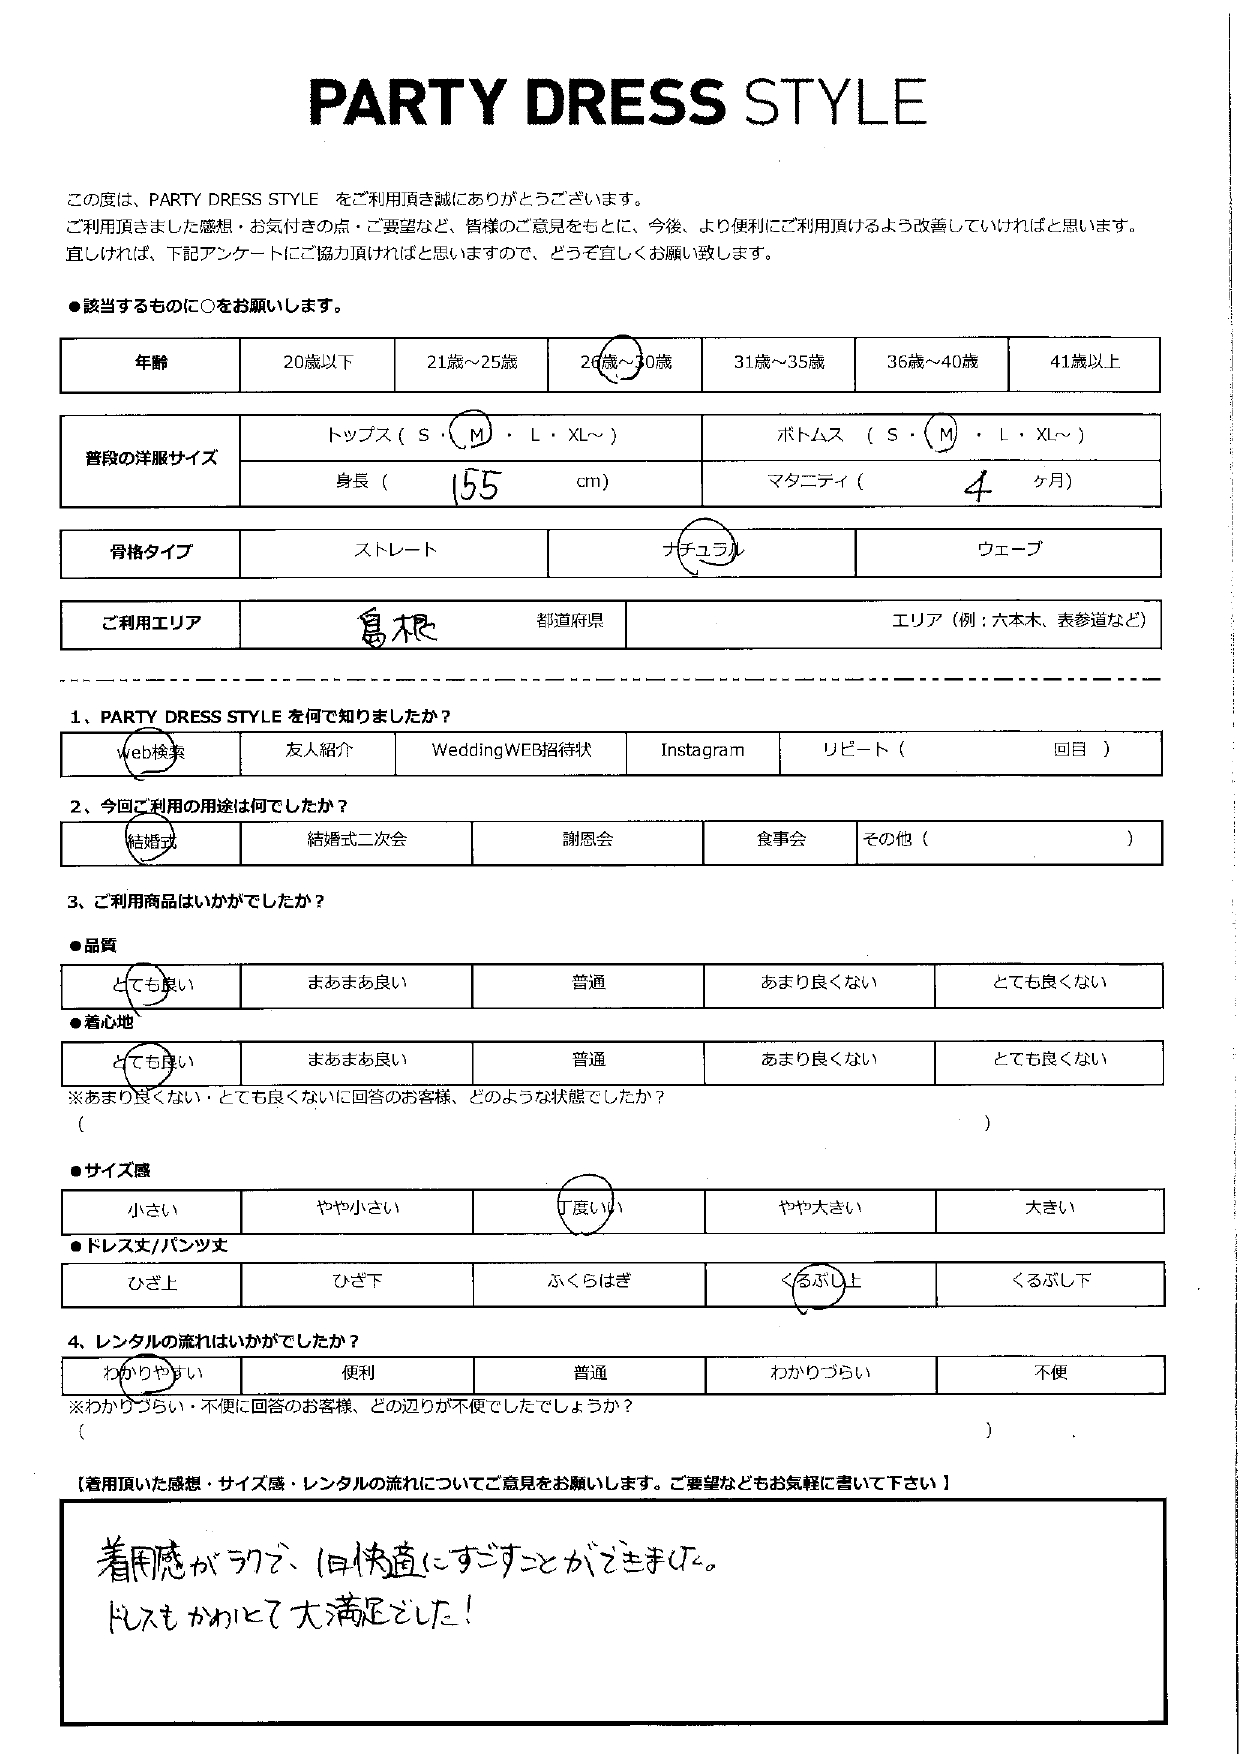 PARTY DRESS STYLE
この度は、PARTY DRESS STYLE をご利用頂き誠にありがとうございます。
ご利用頂きました感想・お気付きの点・ご要望など、皆様のご意見をもとに、今後、より便利にご利用頂けるよう改善していければと思います。
宜しければ、下記アンケートにご協力頂ければと思いますので、どうぞ宜しくお願い致します。
●該当するものに○をお願いします。
年齢 20歳以下 21歳～25歳 26歳～30歳 31歳～35歳 36歳～40歳 41歳以上
普段の洋服サイズ トップス ( S ・ M ・ L ・ XL～ ) ボトムス ( S ・ M ・ L ・ XL～ )
身長 ( 155 cm) マタニティ ( 4 ヶ月)
骨格タイプ ストレート ナチュラル ウェーブ
ご利用エリア 島根 都道府県 エリア（例：六本木、表参道など）
1、PARTY DRESS STYLE を何で知りましたか？
web検索 友人紹介 WeddingWEB招待状 Instagram リピート ( 回目 )
2、今回ご利用の用途は何でしたか？
結婚式 結婚式二次会 謝恩会 食事会 その他 ( )
3、ご利用商品はいかがでしたか？
●品質
とても良い まあまあ良い 普通 あまり良くない とても良くない
●着心地
とても良い まあまあ良い 普通 あまり良くない とても良くない
※あまり良くない・とても良くないに回答のお客様、どのような状態でしたか？
( )
●サイズ感
小さい やや小さい 丁度いい やや大きい 大きい
●ドレス丈/パンツ丈
ひざ上 ひざ下 ふくらはぎ くるぶし上 くるぶし下
4、レンタルの流れはいかがでしたか？
わかりやすい 便利 普通 わかりづらい 不便
※わかりづらい・不便に回答のお客様、どの辺りが不便でしたでしょうか？
( )
【着用頂いた感想・サイズ感・レンタルの流れについてご意見をお願いします。ご要望などもお気軽に書いて下さい】
着用感がラクで、1日快適にすごすことができました。
ドレスもかわいくて大満足でした！